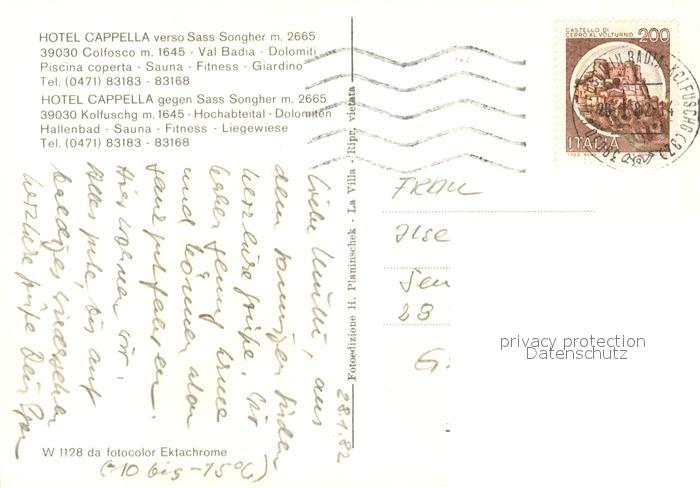 HOTEL CAPPELLA verso Sass Songher m. 2665
39030 Colfosco m. 1645 - Val Badia - Dolomiti
Piscina coperta - Sauna - Fitness - Giardino
Tel. (0471) 83183 - 83168
HOTEL CAPPELLA gegen Sass Songher m. 2665
39030 Kolfuschg m. 1645 - Hochabteital - Dolomiten
Hallenbad - Sauna - Fitness - Liegewiese
Tel. (0471) 83183 - 83168
28.1.82
Liebe Mutti, aus
dem sonnigen Süden
herzliche Grüße. Wir
haben Schnee
und können
fahren.
Hier wohnen wir.
Alles Gute, bis auf
baldiges Wiedersehen
herzliche Grüße Dein
(-10 bis -15°C)
W 1128 da fotocolor Ektachrome
Fotoedizione H. Planinschek - La Villa - Ripr. vietata
CASTELLO DI
CERRO AL VOLTURNO 200
ITALIA
KOLFUSCHG
FRAU
Ilse
28
G.
privacy protection
Datenschutz